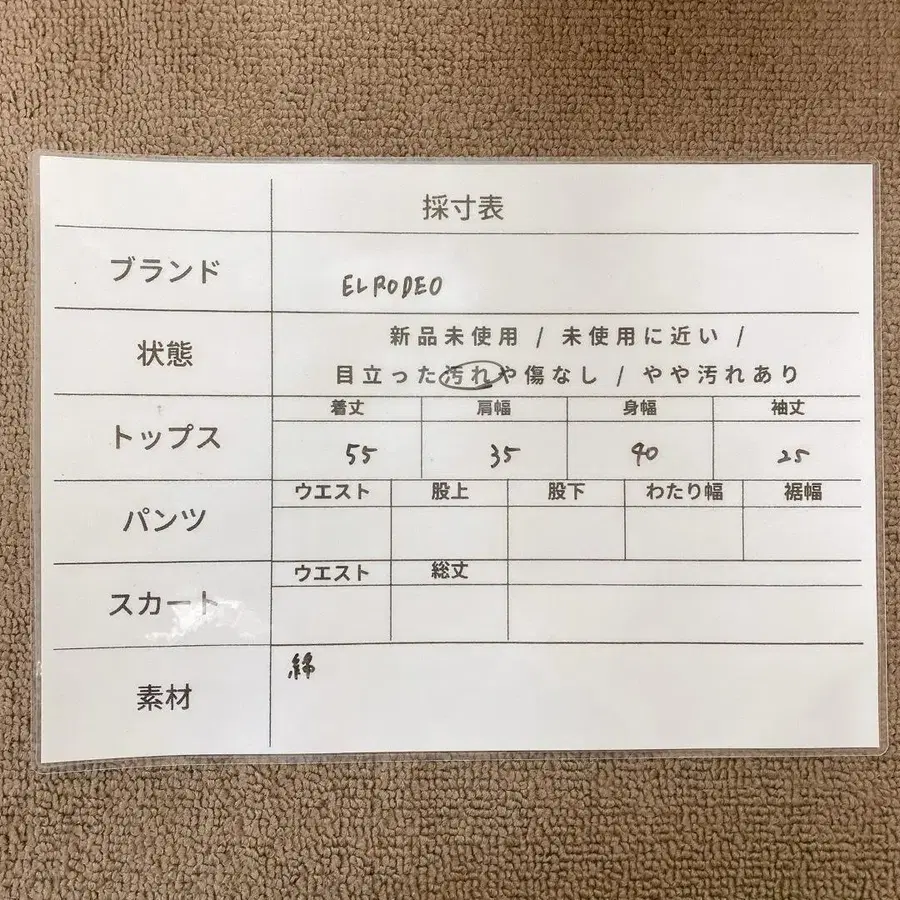 採寸表
ブランド
ELRODEO
状態
新品未使用 / 未使用に近い /
目立った汚れや傷なし / やや汚れあり
トップス
着丈 肩幅 身幅 袖丈
55 35 40 25
パンツ
ウエスト 股上 股下 わたり幅 裾幅
スカート
ウエスト 総丈
素材
綿